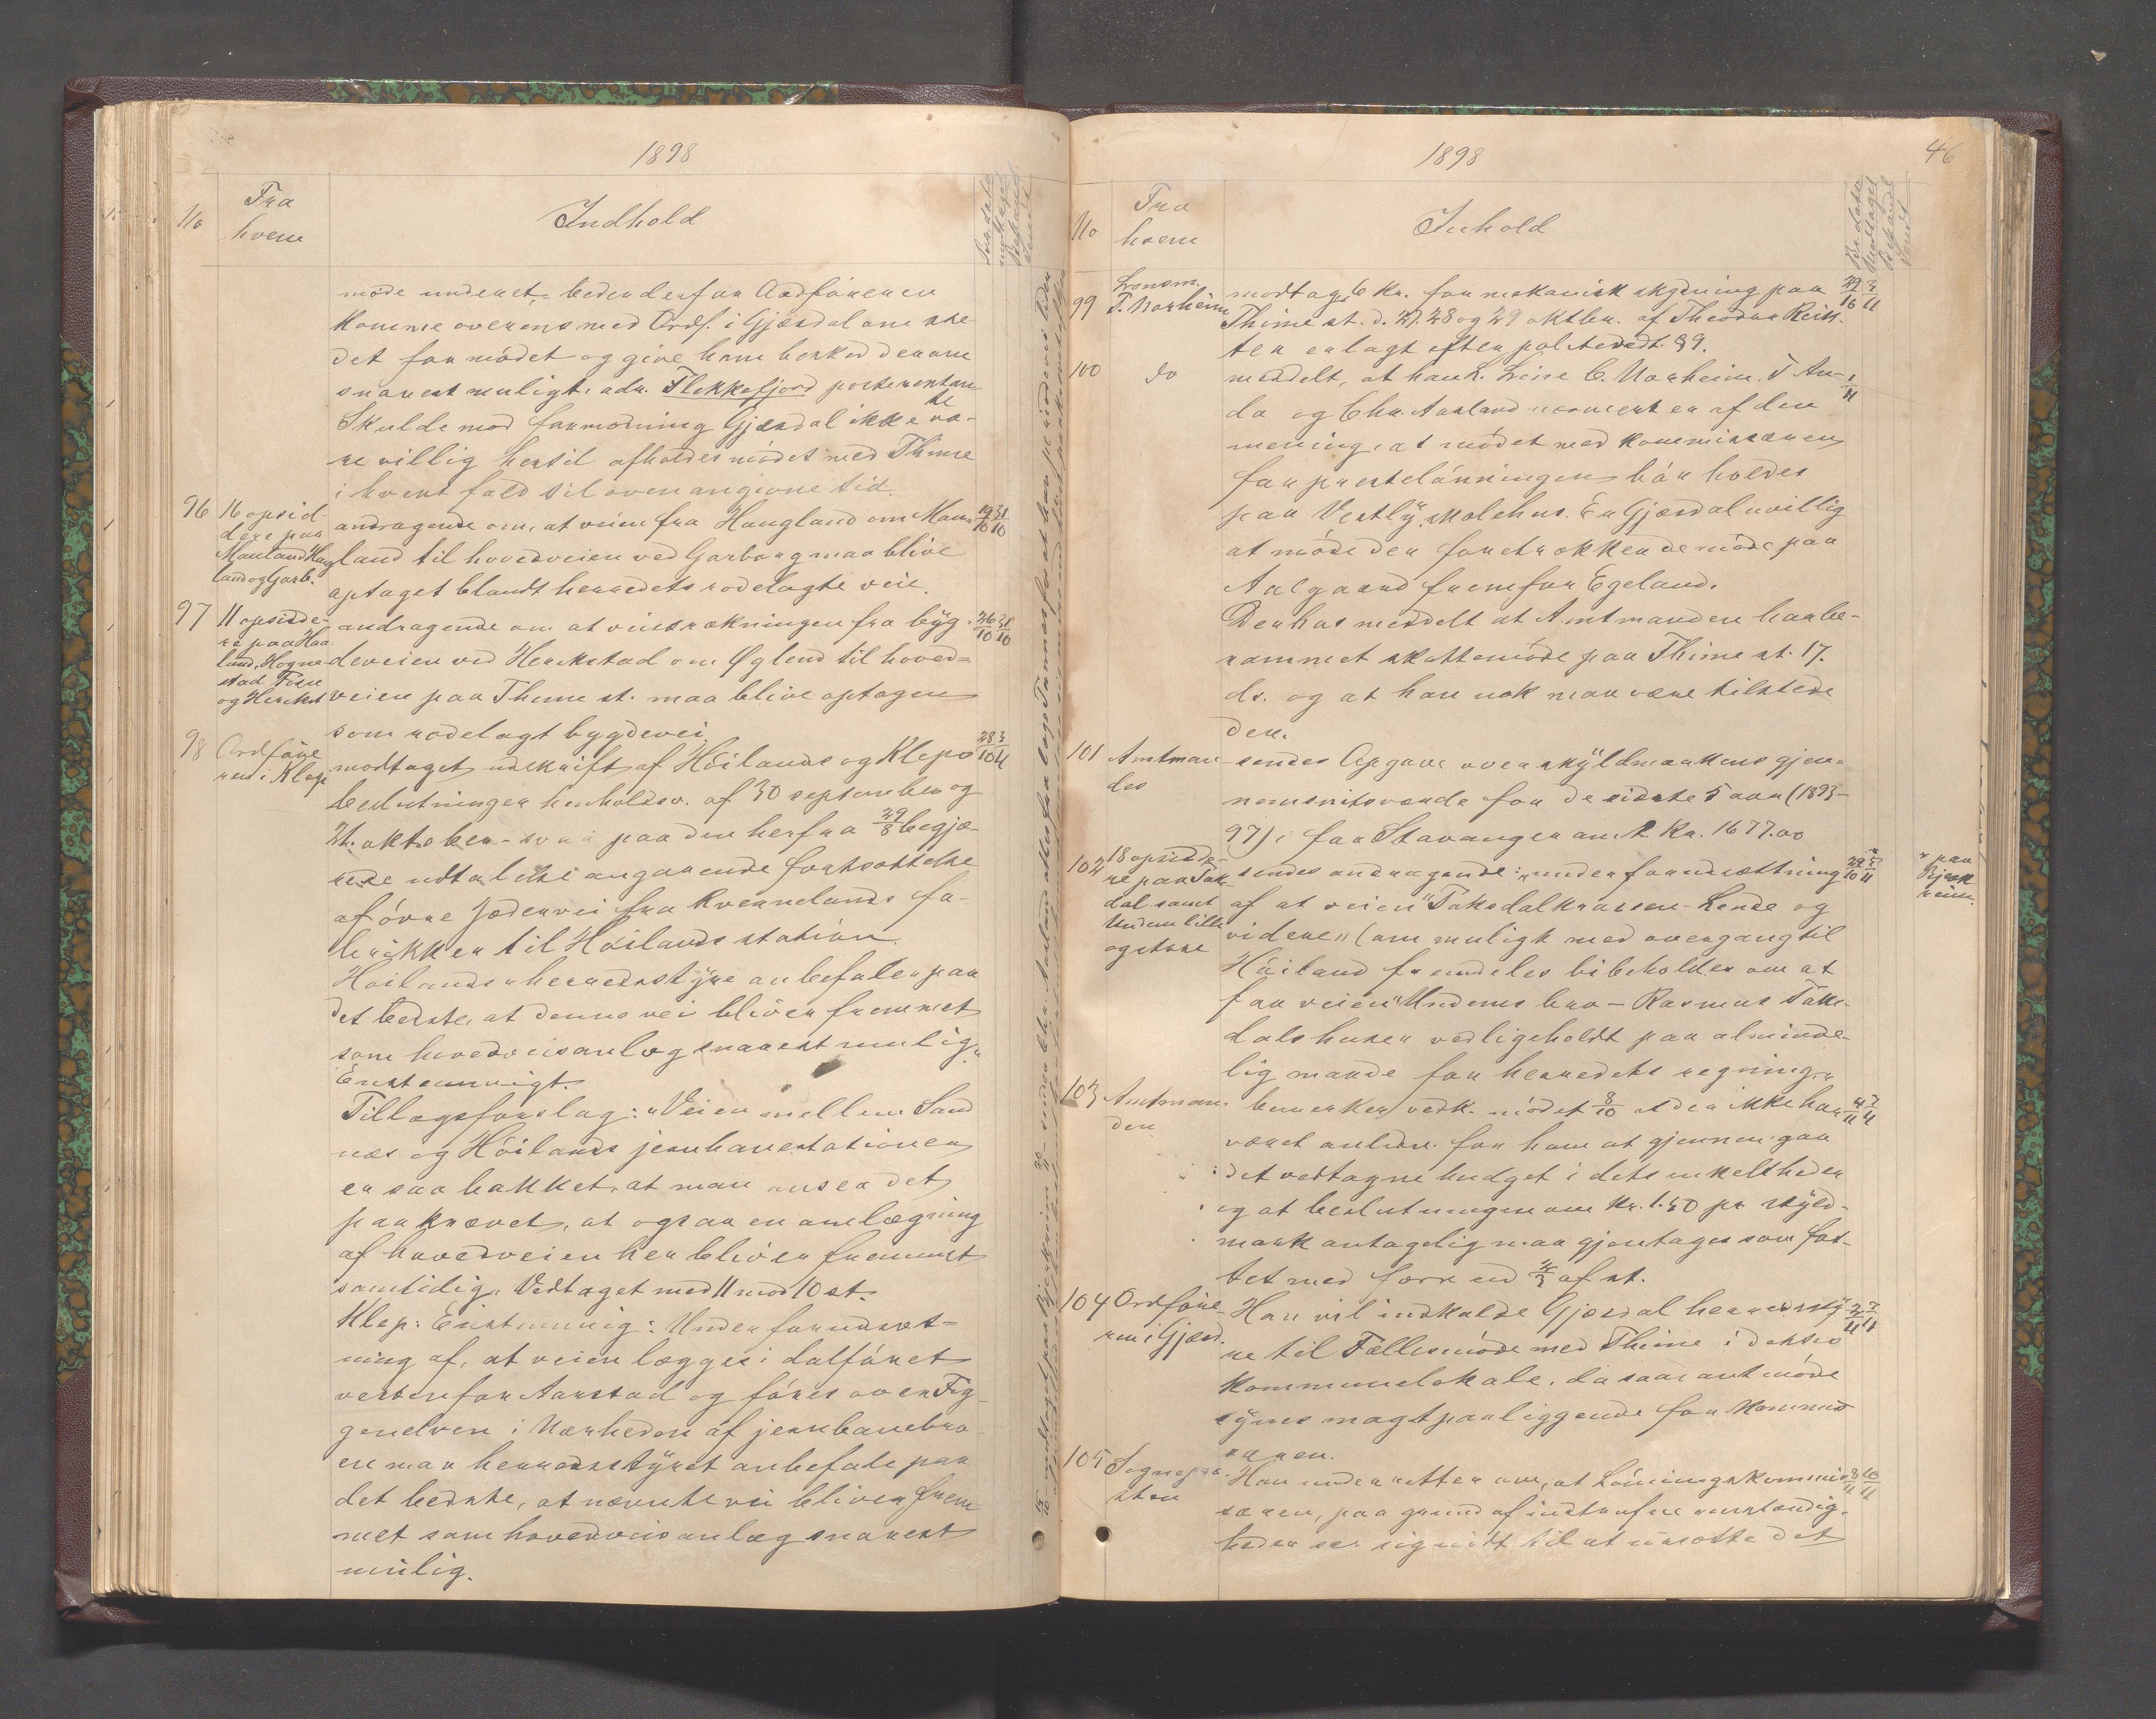 1898
No
Fra
hvem
Indhold
møde underet, beder derfor Ordføreren
komme overens med Ordf. i Gjæsdal om ste-
det for mødet og give ham besked derom
snarest muligt, adr. Flekkefjord posterestan
te
Skulde mod formodning Gjæsdal ikke væ-
re villig hertil afholdes mødet med Thime
i hvert fald til oven angivne tid.
96
16 opsid-
dere paa
Mauland Haug
land og Garb.
andragende om, at veien fra Haugland om Mau-
land til hovedveien ved Garborg maa blive
optaget blandt herredets rodelagte veie.
19/10 31/10
97
11 opsidde-
re paa Haa
land, Hogne
stad Fosse
og Herikst
andragende om at veistrækningen fra byg-
deveien ved Herikstad om Øglend til hoved-
veien paa Thime st. maa blive optagen
som rodelagt bygdevei.
26/10 31/10
98
Ordføre
ren i Klep
modtaget udskrift af Höilands og Kleps
beslutninger henholdsv. af 30 september og
21. oktober - svar paa den herfra 29/8 begjæ-
rede udtalelse angaaende fortsættelse
af øvre Jædervei fra Kvernelands fa-
brikker til Høilands station.
Høilands herredsstyre anbefaler paa
det bedste, at denne vei bliver fremmet
som hovedveisanlæg snarest mulig"
Enstemmigt.
Tillægsforslag: "Veien mellem Sand
næs og Høilands jernbanestationer
er saa bakket, at man anser det
paakrævet, at ogsaa en omlægning
af hovedveien her bliver fremmet
samtidig". Vedtaget med 11 mod 10 st.
Klep: Enstemmig: Under forudsæt-
ning af, at veien lægges i dalføret
vestenfor Aarstad og føres over Fig-
genelven i Nærheden af jernbanebro-
en maa herredsstyret anbefale paa
det bedste, at nævnte vei bliver frem
met som hovedveisanlæg snarest
mulig.
28/10 3/11
1898
46
No
Fra
hvem
Inhold
Br. dato
Modtaget
Expederet
Sendt
99
Lensm.
T. Norheim
modtag. 6 Kr. for mekanisk skydning paa
Thime st. d. 27. 28 og 29 oktbr. af Theodor Reis-
ter erlagt efter politivedt. § 9.
29/10 3/11
100
do
meddelt, at han L. Lense C. Norheim. T Au-
da og Chr. Aarland nærmest er af den
mening, at mødet med kommissæren
for prestelønningen bør holdes
paa Vestly, skolehus. Er Gjæsdal uvillig
at møde der foretrækkende møde paa
Aalgaard fremfor Egeland.
Derhos meddelt at Amtmanden har be-
rammet skattemøde paa Thime st. 17.
ds. og at han nok maa være tilstede
der.
101
Amtman
den
sendes Opgave over skyldmarkens gjen-
nemsnitsværde for de sidste 5 aar (1893-
97), for Stavanger amt. Kr. 1677.00
102
18 opsidde-
re paa Tak-
dal samt
Undem lille
og store
sendes andragende: "under forudsætning
af at veien "Taksdalkrossen - Lende og
videre" (om muligt med overgang til
Høiland fremdeles bibeholdes om at
faa veien "Undems bro - Rasmus Taks-
dals huse" vedligeholdt paa alminde-
lig maade for herredets regning."
29/10 5/11
* paa
Bjerk
reim.
103
Amtman
den
bemerker vedk. mødet 8/10 at der ikke har
været anledn. for ham at gjennemgaa
det vedtagne budget i dets enkeltheder
og at beslutningen om Kr. 1.50 pr skyld-
mark antagelig maa gjentages som fat-
tet med færre end 2/3 af st.
4/11 7/11
104
Ordføre-
ren i Gjæsd.
Han vil indkalde Gjæsdal herredssty-
re til Fællesmøde med Thime i dettes
kommunelokale, da saadant møde
synes magtpaaliggende for kommis
særen.
2/11 7/11
105
Sognepre-
sten
Han underretter om, at Lønningskommis
særen, paa grund af indtrufne omstændig-
heder ser sig nødt til at udsætte det
8/11 10/11